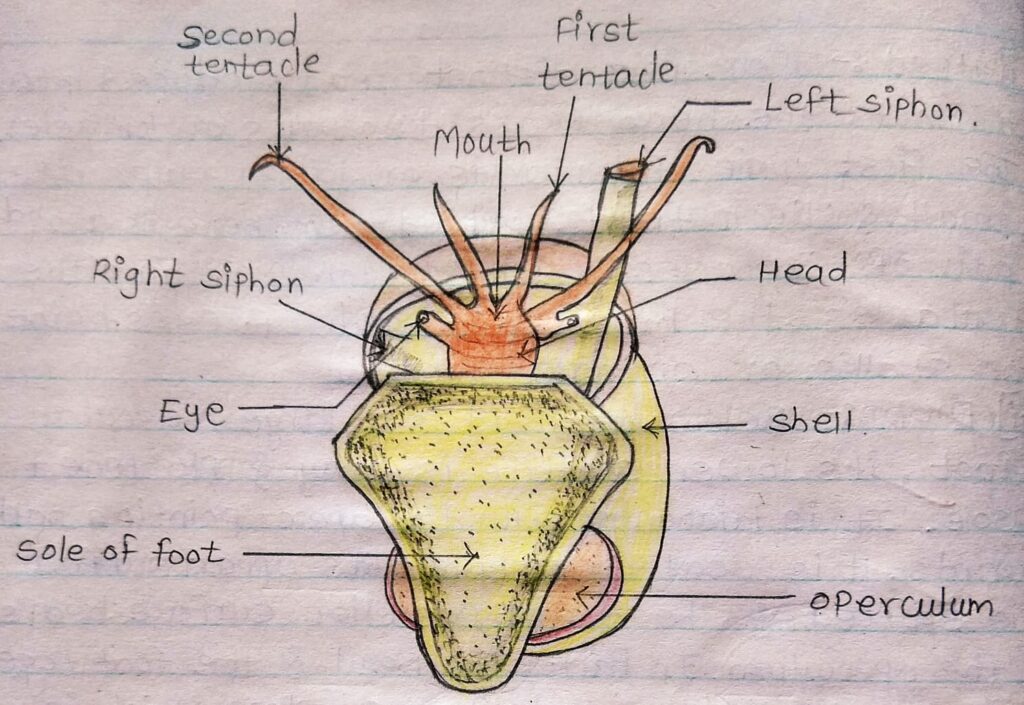 Second
tentacle
First
tentacle
Left siphon.
Mouth
Right siphon
Head
Eye
shell
Sole of foot
operculum